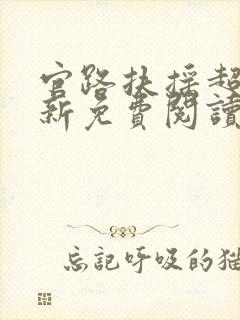 官路扶搖超
新免費閱讀
忘記呼吸的猫